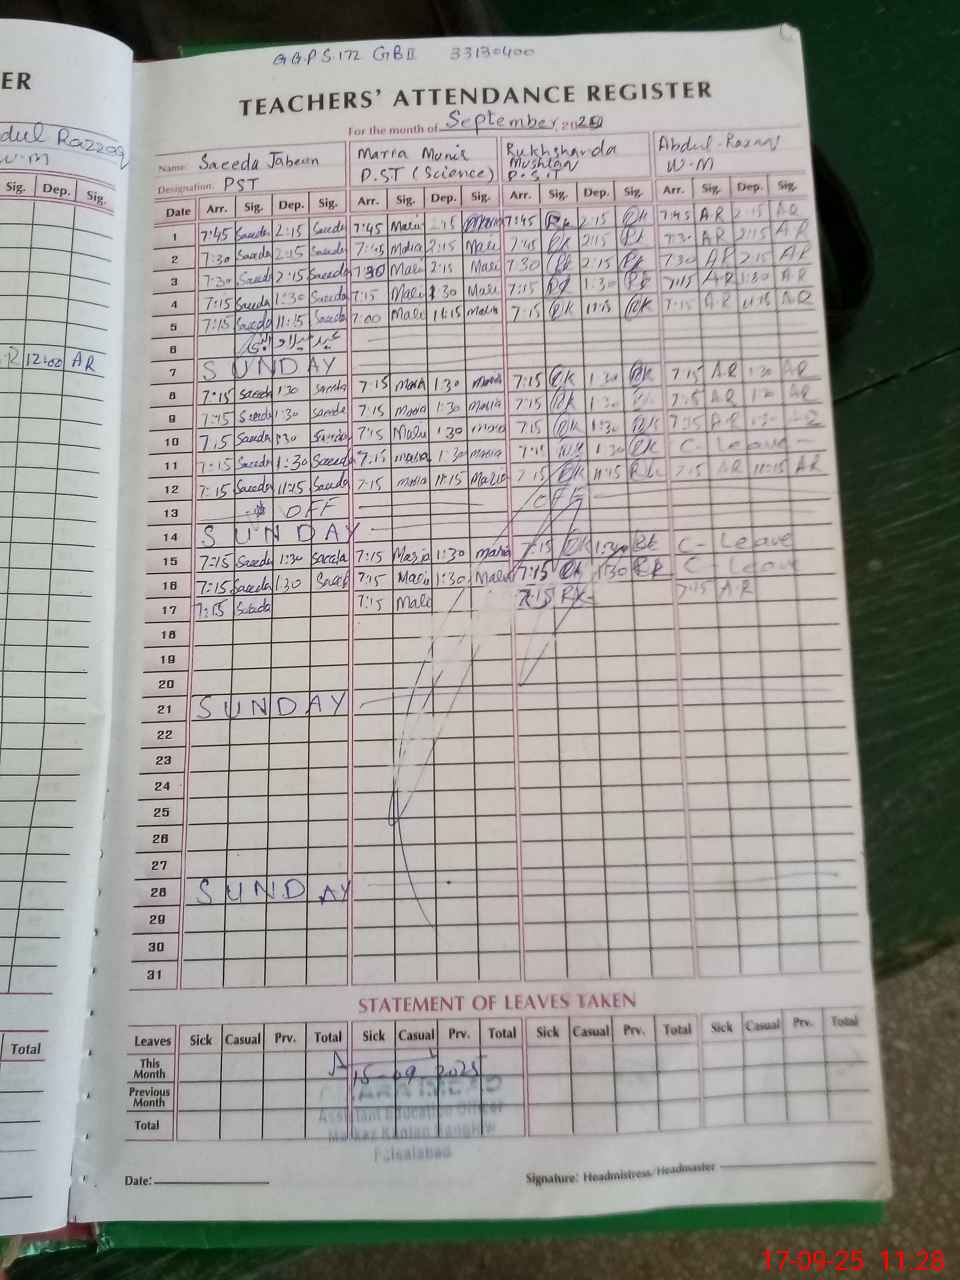 ER
Abdul Razzaq
W-M
Sig. Dep. Sig.
12:00 AR
Total
G.G.P.S. 172 GB II 33130400
TEACHERS' ATTENDANCE REGISTER
For the month of September, 20
Name: Saeeda Jabeen Maria Munir Rukhshanda Mushtaq Abdul-Razzaq
Designation: PST P.ST (Science) P.S.T W-M
Date Arr. Sig. Dep. Sig. Arr. Sig. Dep. Sig. Arr. Sig. Dep. Sig. Arr. Sig. Dep. Sig.
1 7:45 Saeeda 2:15 Saeeda 7:45 Maria 2:15 Maria 7:45 RK 2:15 RK 7:45 AR 2:15 AR
2 7:30 Saeeda 2:15 Saeeda 7:45 Maria 2:15 Maria 7:45 RK 2:15 RK 7:30 AR 2:15 AR
3 7:30 Saeeda 2:15 Saeeda 7:30 Maria 2:15 Maria 7:30 RK 2:15 RK 7:30 AR 2:15 AR
4 7:15 Saeeda 1:30 Saeeda 7:15 Maria 1:30 Maria 7:15 RK 1:30 RK 7:15 AR 1:30 AR
5 7:15 Saeeda 11:15 Saeeda 7:00 Maria 11:15 Maria 7:15 RK 11:15 RK 7:15 AR 11:15 AR
6 عید میلاد النبی
7 SUNDAY
8 7:15 Saeeda 1:30 Saeeda 7:15 Maria 1:30 Maria 7:15 RK 1:30 RK 7:15 AR 1:30 AR
9 7:15 Saeeda 1:30 Saeeda 7:15 Maria 1:30 Maria 7:15 RK 1:30 RK 7:15 AR 1:30 AR
10 7:15 Saeeda 1:30 Saeeda 7:15 Maria 1:30 Maria 7:15 RK 1:30 RK 7:15 AR 1:30
11 7:15 Saeeda 1:30 Saeeda 7:15 Maria 1:30 Maria 7:15 RK 1:30 RK C-Leave
12 7:15 Saeeda 11:15 Saeeda 7:15 Maria 11:15 Maria 7:15 RK 11:15 RK 7:15 AR 11:15 AR
13 OFF OFF
14 SUNDAY
15 7:15 Saeeda 1:30 Saeeda 7:15 Maria 1:30 Maria 7:15 RK 1:30 RK C-Leave
16 7:15 Saeeda 1:30 Saeeda 7:15 Maria 1:30 Maria 7:15 RK 1:30 RK C-Leave
17 7:15 Saeeda 7:15 Maria 7:15 RK 7:15 AR
18
19
20
21 SUNDAY
22
23
24
25
26
27
28 SUNDAY
29
30
31
STATEMENT OF LEAVES TAKEN
Leaves Sick Casual Prv. Total Sick Casual Prv. Total Sick Casual Prv. Total Sick Casual Prv. Total
This Month
15-09-2025
Previous Month
Assistant Education Officer
Total
Faisalabad
Date:
Signature: Headmistress/Headmaster
17-09-25 11:28